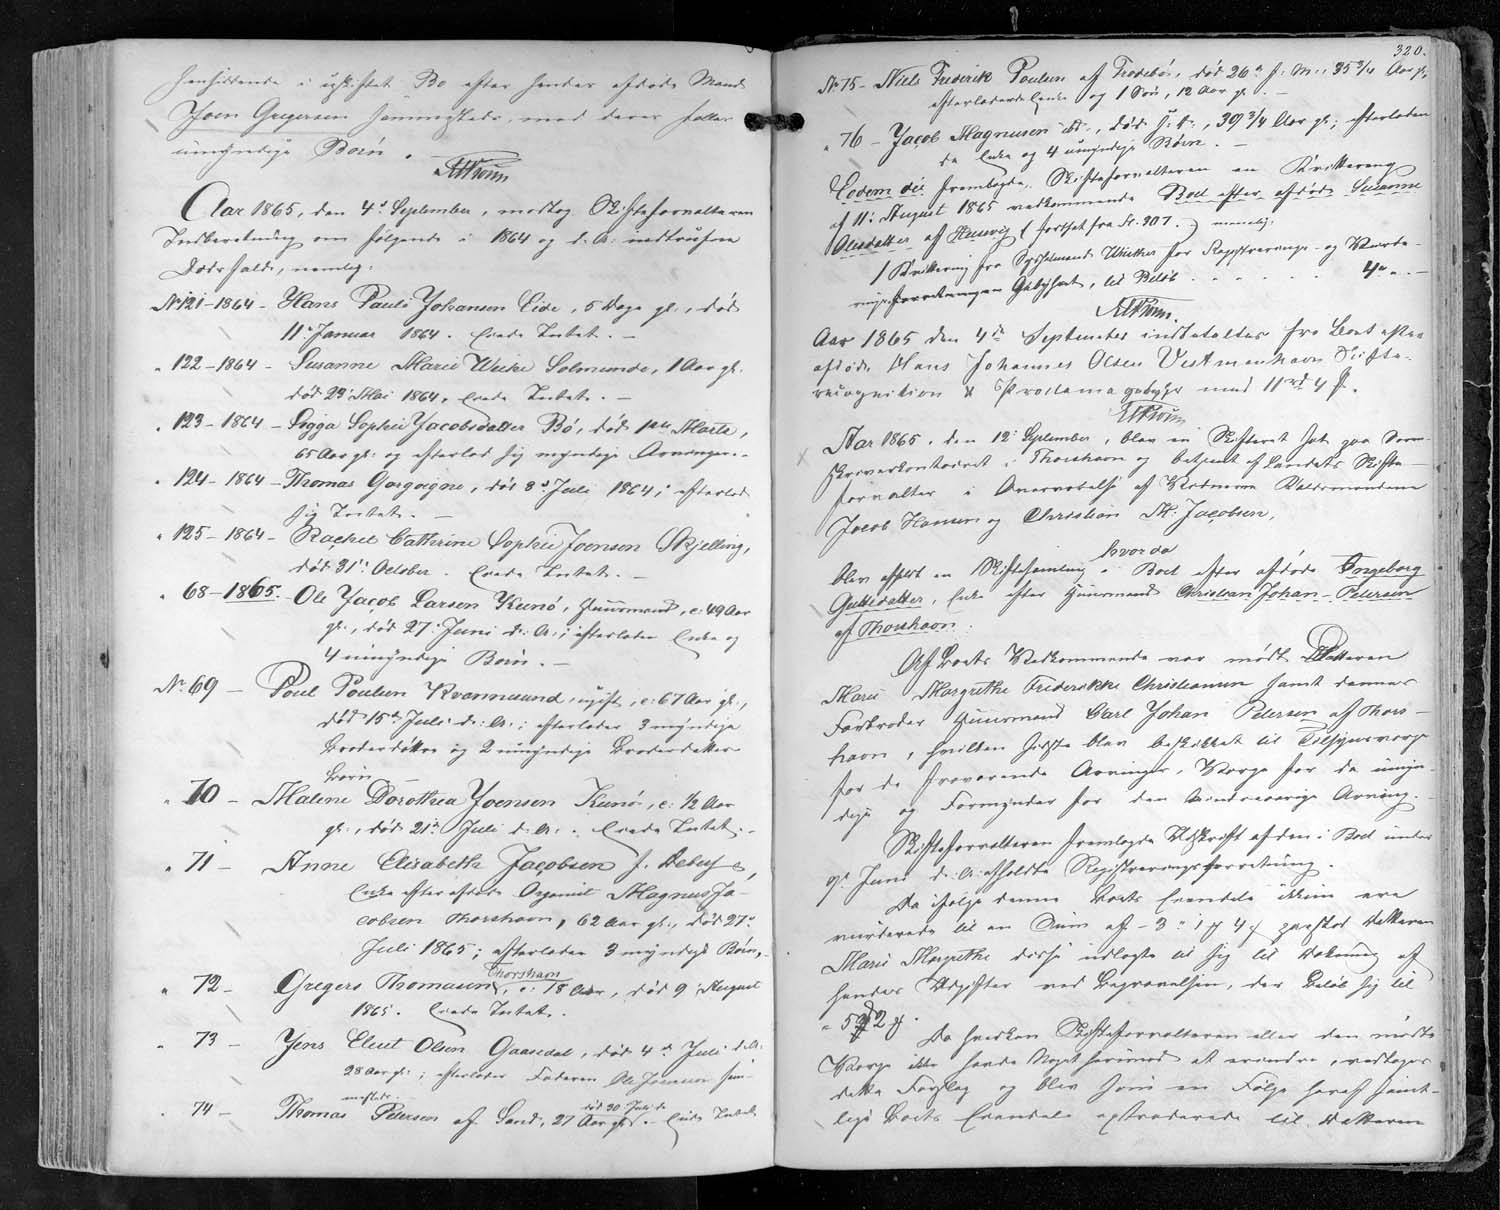 henhiddende i uskiftet Bo efter hendes afdøde Mand
Joen Gregersen sammesteds, med deres fælles
umyndige Børn.
Aar 1865, den 4de September, modtog Skifteforvalteren
Indberetning om følgende i 1864 og d. A. indtrufne
Dødsfald, nemlig:
No 121-1864 - Hans Pauli Johansen Eide, 5 Dage gl., død
11te Januar 1864. Endt Intet. -
" 122-1864 - Susanne Marie Weihe Selmunde, 1 Aar gl.
død 23 Mai 1864. Intet. -
" 123-1864 - Sigga Sophie Jacobsdatter Bø, død 1ste Marts,
65 Aar gl. og efterlod sig myndige Arvinger. -
" 124-1864 - Thomas, død 8de Juli 1864; efterlod
sig Intet. -
" 125-1864 - Rachel Cathrine Sophie Joensen Skjelling,
død 31te October. Intet. -
" 68-1865. Ole Jacob Larsen Kunø, Huusmand, c. 49 Aar
gl., død 27 Juni d. A.; efterlader Enke og
4 umyndige Børn. -
No 69 - Poul Poulsen Kvannesund, ugift, c. 67 Aar gl.,
død 15de Juli d. A.; efterlader 3 myndige
og 2 umyndige
Børn -
" 70 - Malene Dorothea Joensen Kunø, c. 12 Aar
gl., død 21de Juli d. A. Intet. -
" 71 - Anne Elisabeth Jacobsen f. Debes,
Enke efter afdøde Organist Magnus Ja-
cobsen Thorshavn, 62 Aar gl., død 27de
Juli 1865; efterlader 3 myndige Børn. -
Thorshavn
" 72 - Gregers Thomasen, c. 78 Aar, død 9 August
1865. Intet.
" 73 - Jens Elent Olsen Gaasedal, død 4de Juli d. A.
28 Aar gl.; efterlader Faderen Ole Joensen sam-
mesteds
død 30 Juli d. A.
" 74 - Thomas Petersen af Sand, 27 Aar gl. - Intet
320.
No 75 - Niels Frederik Poulsen af Trodebø, død 26de f. M., 35 3/4 Aar gl.,
efterladende Enke og 1 Søn, 12 Aar gl. -
" 76 - Jacob Magnusen, død, 39 3/4 Aar gl; efterladen-
de Enke og 4 umyndige Børn. -
Eodem die fremlagde Skifteforvalteren en Kvittering
af 11te August 1865 vedkommende Boet efter afdøde Susanne
Olesdatter af (fortsat fra Fr. 307.) nemlig:
1 Kvittering fra Sysselmand Winther for Registrerings- og Vurde-
ringsforretningen Gebyhret, til Beløb . . . . . . 4 " " -
Aar 1865 den 4de September indbetaltes fra Boet efter
afdøde Hans Johannes Olsen Vestmanhavn Skifte-
recognition & Proclamagebyhr med 11rd 4 ß.
Aar 1865, den 12te September, blev en Skifteret sat paa Soren-
skriverkontoiret i Thorshavn og betjent af Landets Skifte-
forvalter i Overværelse af Vidnerne
Jacob Hansen og Christian M. Jacobsen,
hvorda
blev afholdt en Skiftesamling i Boet efter afdøde Ingeborg
Guttesdatter, Enke efter Huusmand Christian Johan Petersen
af Thorshavn.
Af Boets Vedkommende var mødt Datteren
Marie Margrethe Frederikke Christiansen samt dennes
Farbroder Huusmand Carl Johan Petersen af Thors-
havn, hvilken sidste blev beskikket til Tilsynsværge
for de fraværende Arvinger, Værge for de umyn-
dige og Formynder for den mindreaarige Arving. -
Skifteforvalteren fremlagde Udskrift af den i Boet under
9de Juni d. A. afholdte Registreringsforretning.
Da ifølge denne Boets Eiendele ikkun ere
vurderede til en Sum af - 3 " 1 ¥ 4 ß paastod Datteren
Marie Margrethe disse udlagte til sig til Dækning af
hendes Udgifter ved Begravelsen, der beløb sig til
Da hverken Skifteforvalteren eller den mødte
Værge havde Noget herimod at erindre, vedtoges
dette Forslag og blev som en Følge heraf samt-
lige Boets Eiendele extraderede til Datteren